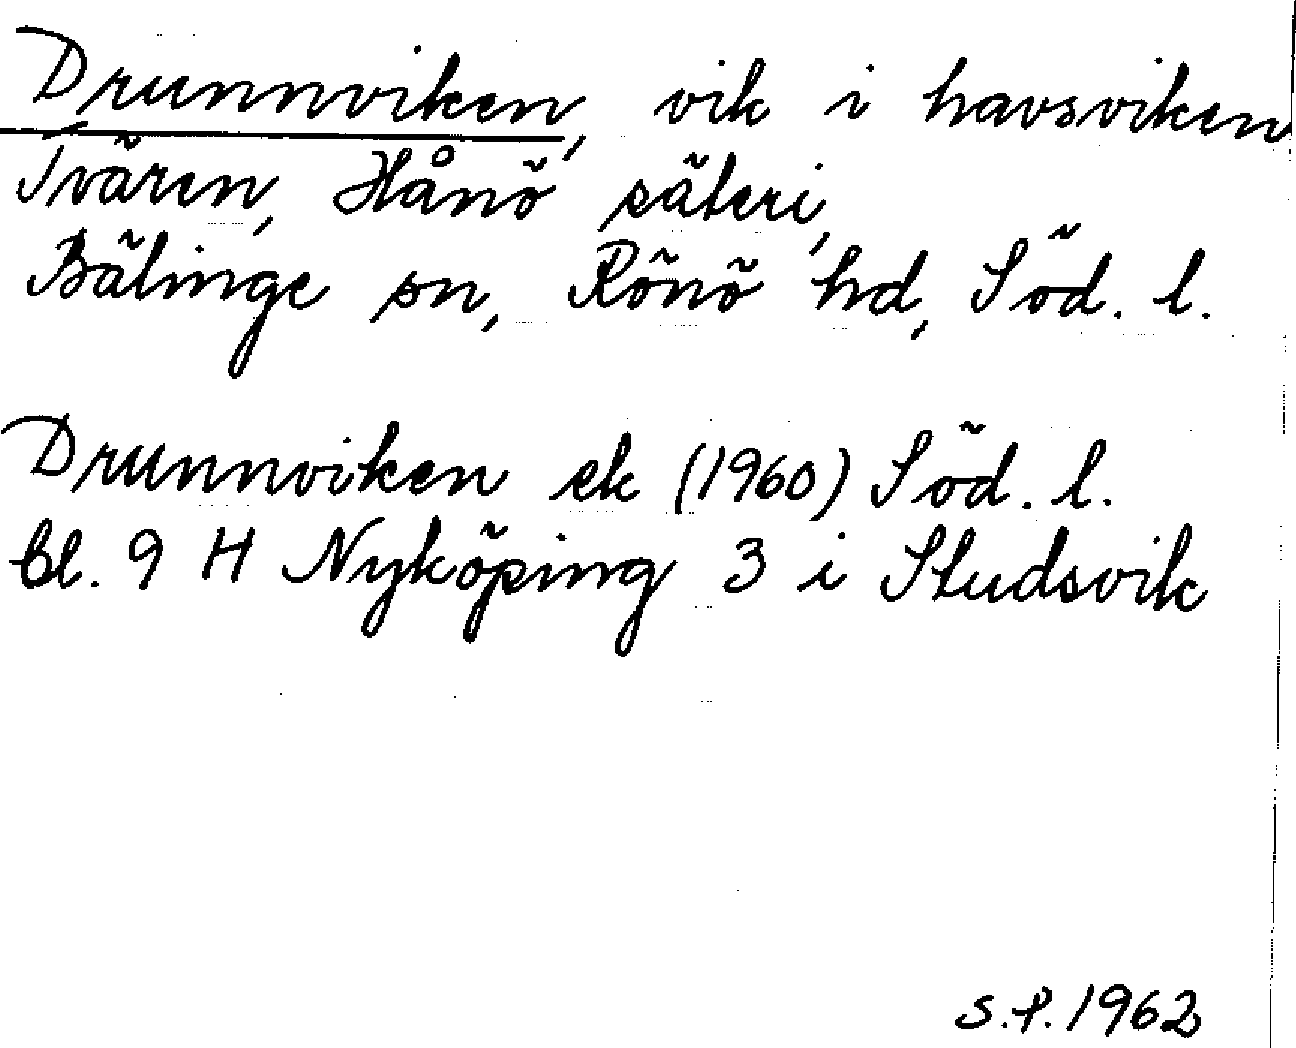 Drunnviken, vik i havsviken
Tvären, Hånö säteri,
Bälinge sn, Rönö hd, Söd. l.
Drunnviken ek (1960) Söd. l.
bl. 9 H Nyköping 3 i Studsvik
S.P. 1962